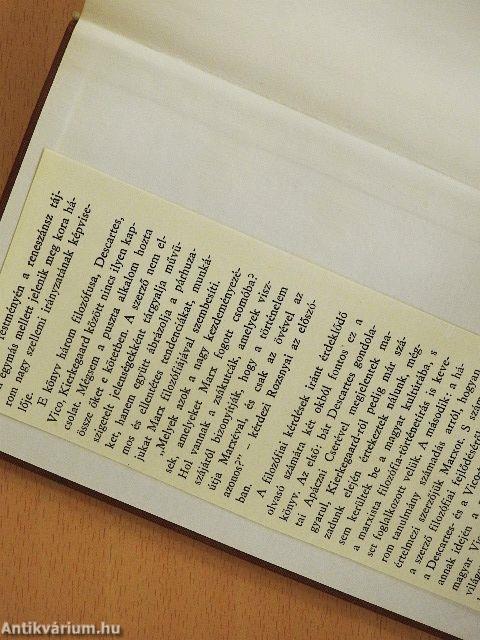 festményén a reneszánsz táj-
egymás mellett jelenik meg kora há-
rom nagy szellemi irányzatának képvise-
lője.
E könyv három filozófusa, Descartes,
Vico, Kierkegaard között nincs ilyen kap-
csolat. Mégsem a puszta alkalom hozta
össze őket e kötetben. A szerző nem el-
szigetelt jelenségekként tárgyalja művü-
ket, hanem együtt ábrázolja a párhuza-
mos és ellentétes tendenciákat, munká-
jukat Marx filozófiájával szembesíti.
„Melyek azok a nagy kezdeményezé-
sek, amelyeket Marx fogott csomóba?
Hol vannak a zsákutcák, amelyek visz-
szájáról bizonyítják, hogy a történelem
útja Marxéval, és csak az övével az
azonos?" — kérdezi Rozsnyai az előszó-
ban.
A filozófiai kérdések iránt érdeklődő
olvasó számára két okból fontos ez a
könyv. Az első: bár Descartes gondola-
tai Apáczai Cserével megjelentek ma-
gyarul, Kierkegaard-ról pedig már szá-
zadunk elején értekeztek nálunk, még-
sem kerültek be a magyar kultúrába, s
a marxista filozófia-történetírás is keve-
set foglalkozott velük. A második: a há-
rom tanulmány számadás arról, hogyan
értelmezi szerzőjük Marxot. S szám
a szerző filozófiai fejlődéséről
a Descartes- és a Vico-t
annak idején a
magyar Vic
világos